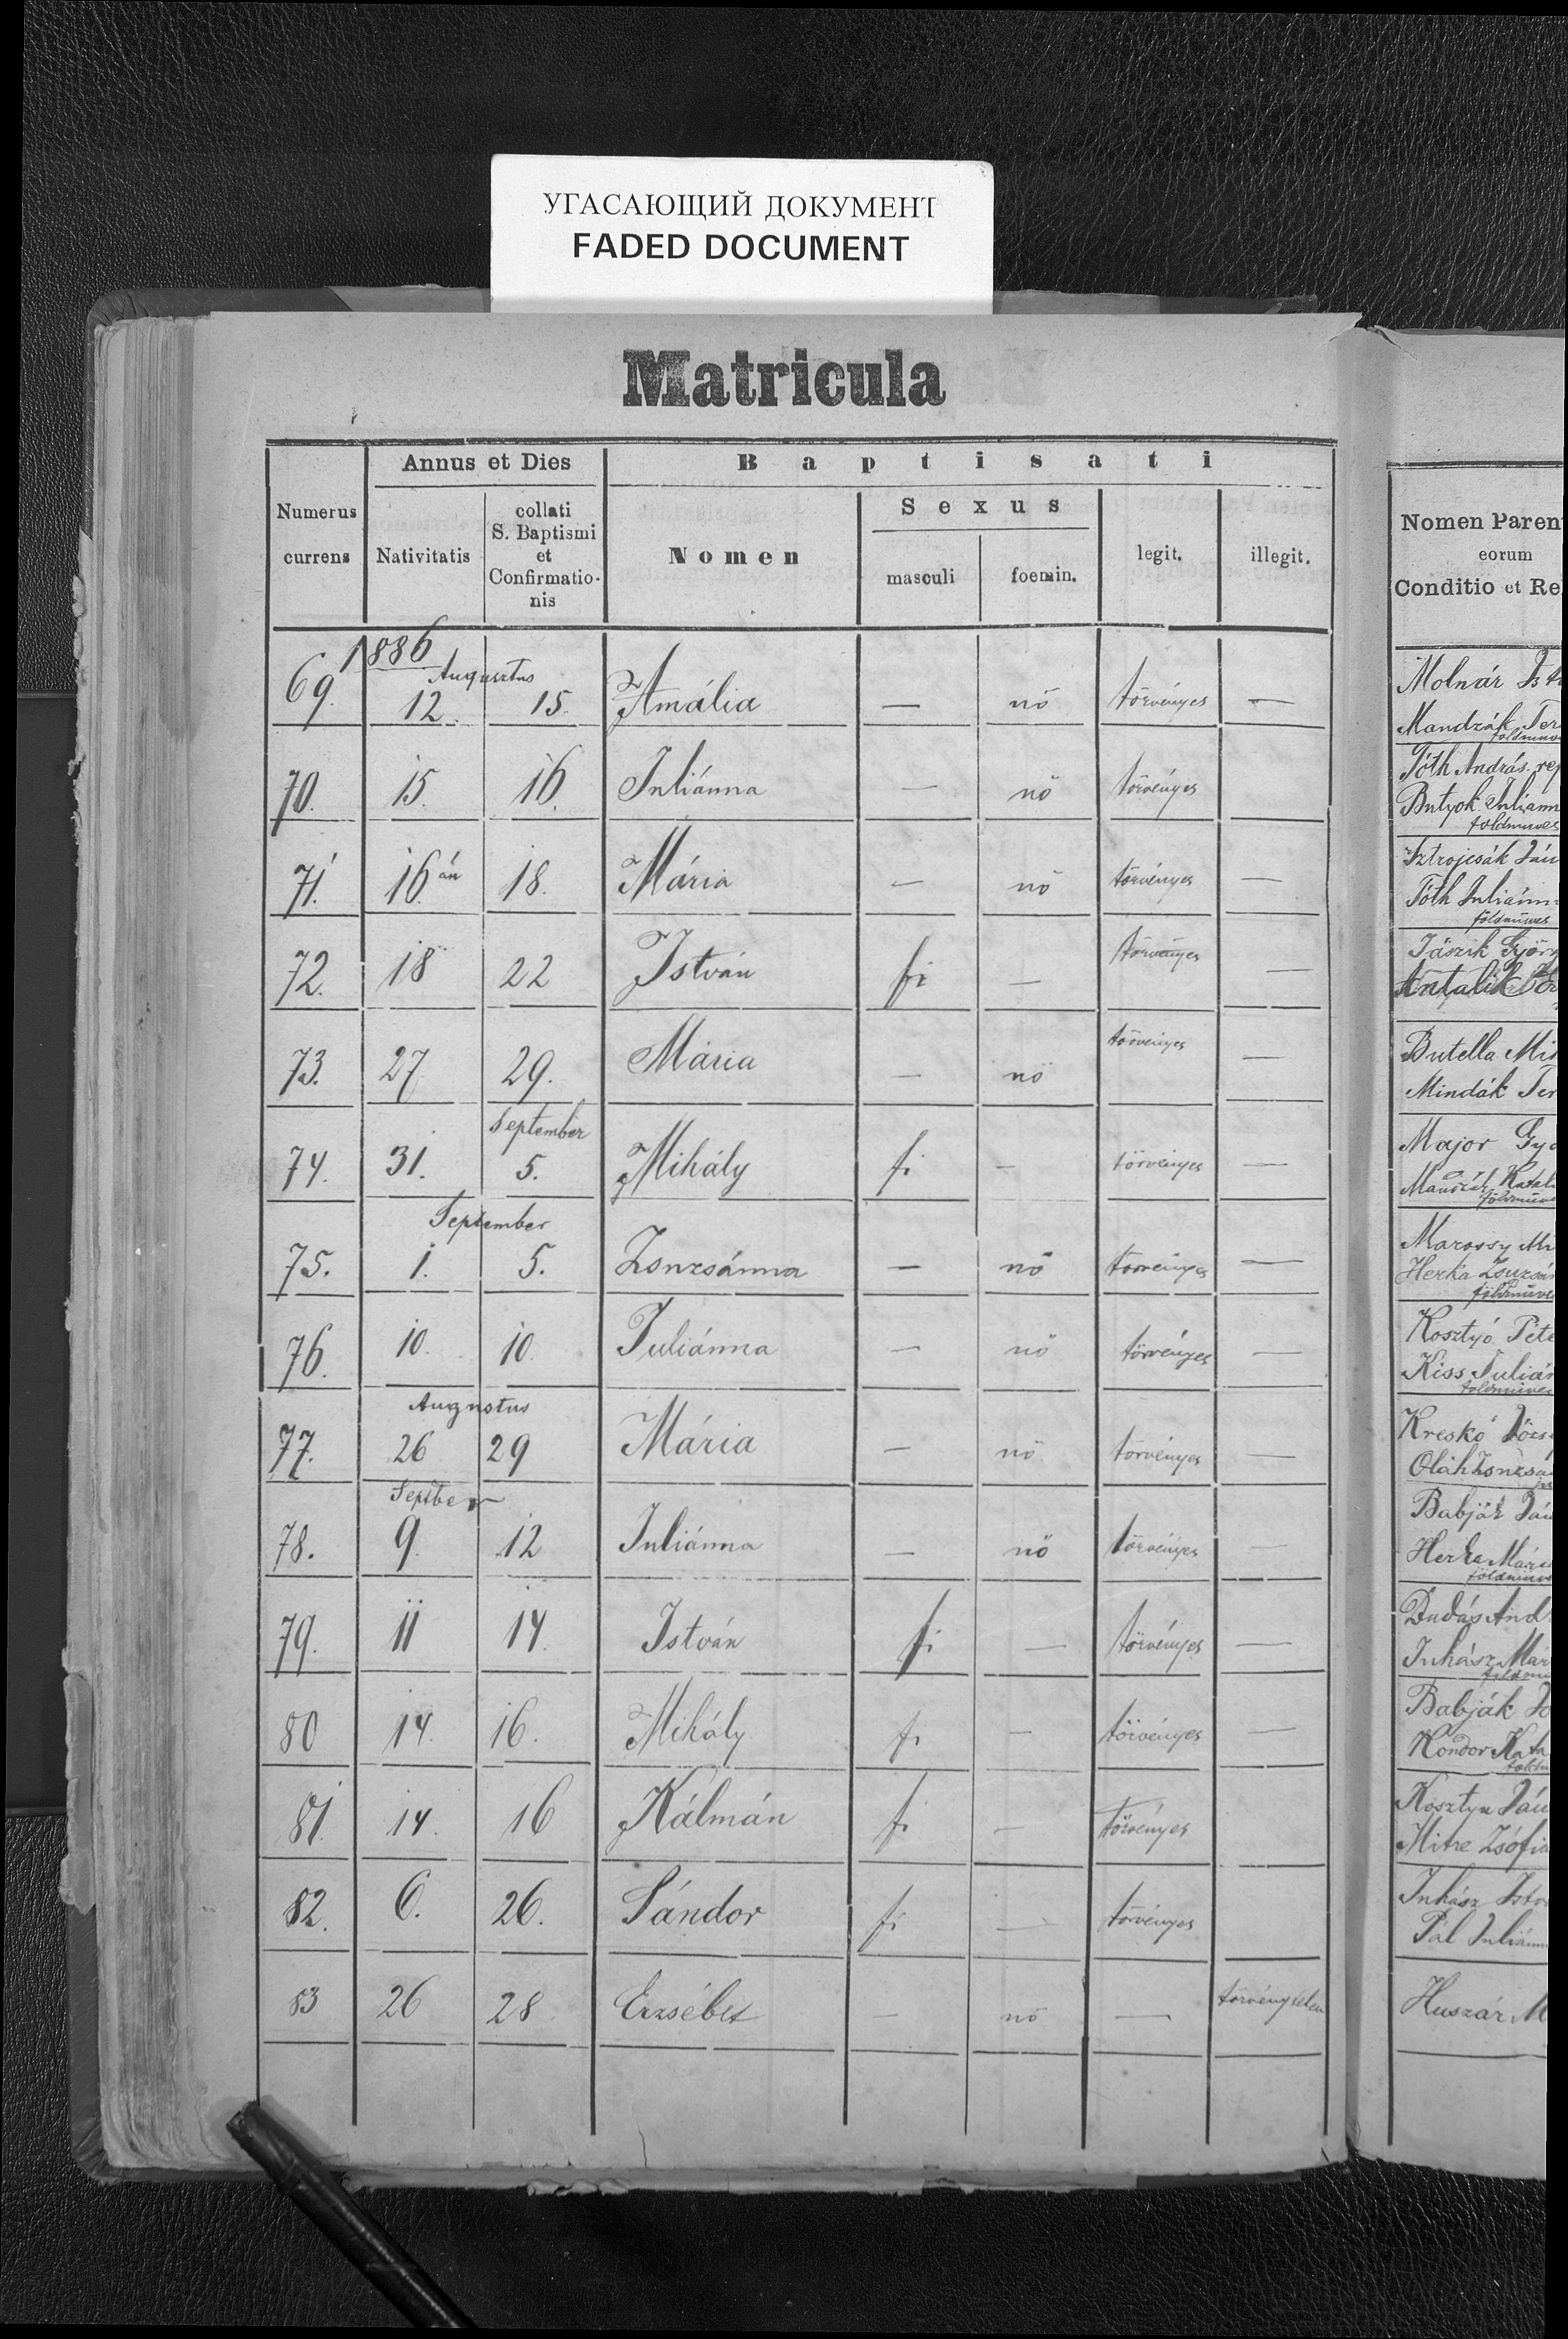 УГАСАЮЩИЙ ДОКУМЕНТ
FADED DOCUMENT
Matricula
Numerus currens
Annus et Dies
Nativitatis
collati S. Baptismi et Confirmatio-nis
Baptisati
Nomen
Sexus
masculi
foemin.
legit.
illegit.
Nomen Paren
eorum
Conditio et Re
1886
Augusztus
69. 12. 15. Amália — nő törvényes —
Molnár Ist
Mandzák Ter
földműve
70. 15. 16. Juliánna — nő törvényes
Tóth András. ref
Butyok Juliann
földmuves
71. 16án 18. Mária — nő törvényes —
Sztrojcsák Ján
Tóth Juliánn
földműves
72. 18 22 István fi — törvényes —
Jászik Györ
Antalik
73. 27 29. Mária — nő törvényes —
Butella Mi
Mindák Ter
September
74. 31. 5. Mihály fi — törvényes —
Major Gyö
Katali
földműve
September
75. 1. 5. Zsuzsánna — nő törvényes —
Marossy Mi
Herka Zsuzsán
földműve
76. 10. 10. Juliánna — nő törvényes —
Kosztyó Péte
Kiss Julián
földműves
Augustus
77. 26 29 Mária — nő törvényes —
Kreskó Józs
Oláh Zsuzsa
September
78. 9. 12 Juliánna — nő törvényes —
Babják Ján
Herka Mári
földműve
79. 11 14. István fi — törvényes —
Dudás And
Juhász Már
földmű
80 14. 16. Mihály fi — törvényes —
Babják
Kondor Kata
földm
81. 14. 16 Kálmán fi — törvényes
Kosztyu Ján
Mitre Zsófia
82. 6. 26. Sándor fi — törvényes
Juhász Istv
Pál Juliánn
83 26 28 Erzsébet — nő — törvénytelen
Huszár M